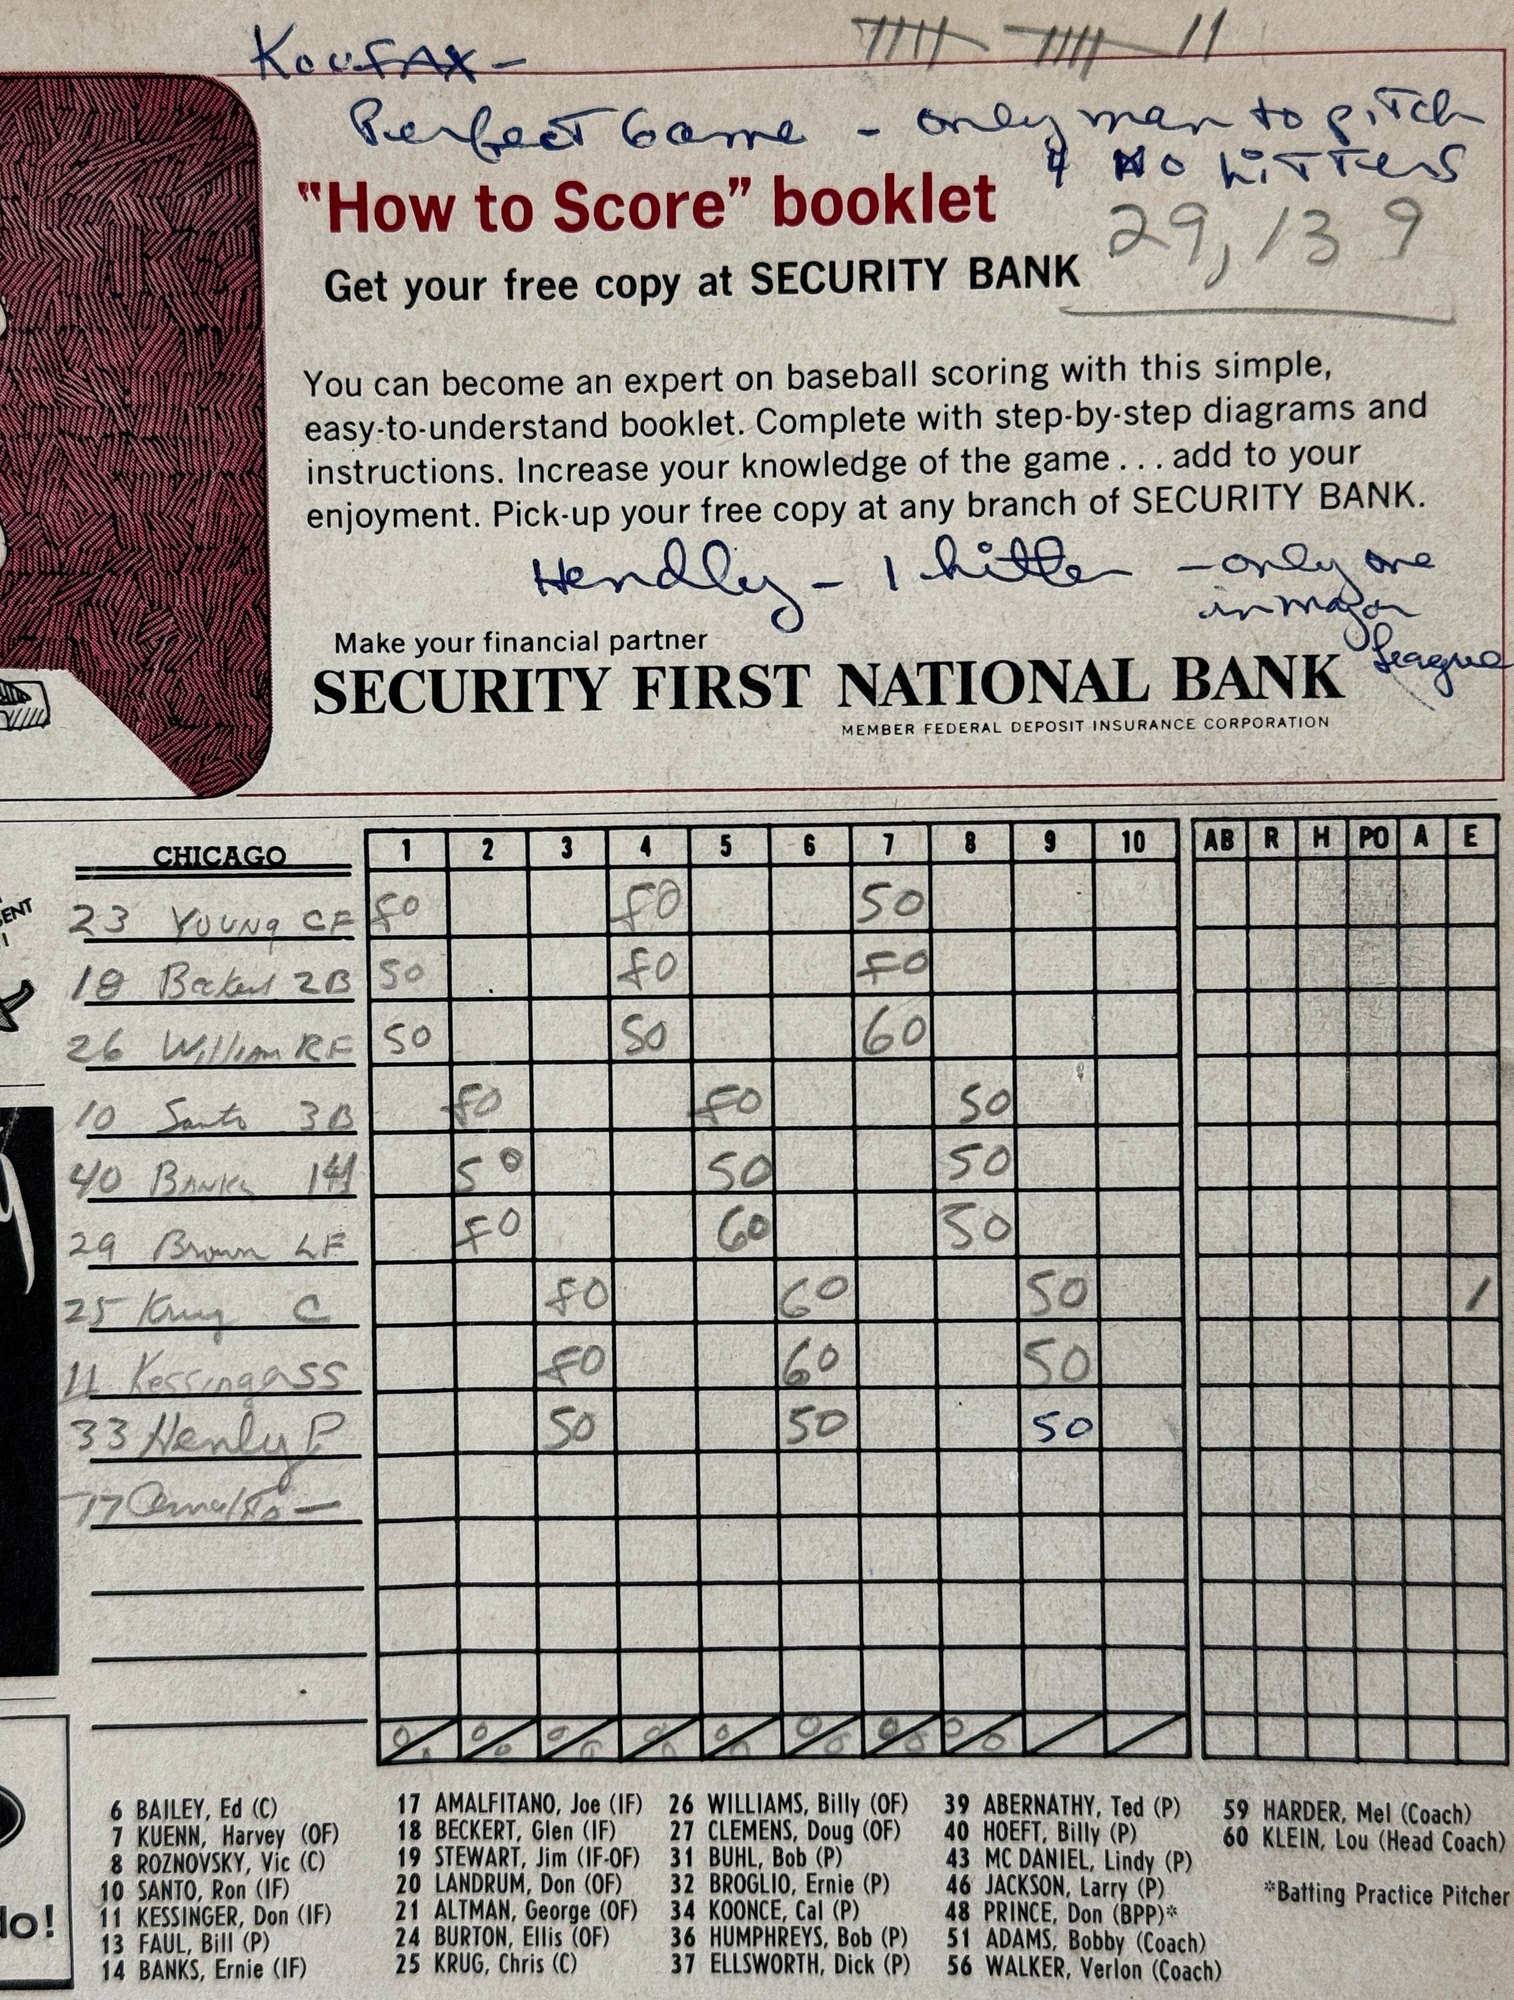 KOUFAX -
Perfect Game - only man to pitch
4 No hitters
"How to Score" booklet
29,139
Get your free copy at SECURITY BANK
You can become an expert on baseball scoring with this simple,
easy-to-understand booklet. Complete with step-by-step diagrams and
instructions. Increase your knowledge of the game . . . add to your
enjoyment. Pick-up your free copy at any branch of SECURITY BANK.
Hendly - 1 hitter - only one
in major
league
Make your financial partner
SECURITY FIRST NATIONAL BANK
MEMBER FEDERAL DEPOSIT INSURANCE CORPORATION
CHICAGO 1 2 3 4 5 6 7 8 9 10 AB R H PO A E
23 Young CF FO FO SO
18 Beckert 2B SO FO FO
26 William RF SO SO GO
10 Santo 3B FO FO SO
40 Banks SO SO SO
29 Brown LF FO GO SO
25 Krug C FO GO SO 1
11 Kessinga SS FO GO SO
33 Henly P SO SO SO
17
6 BAILEY, Ed (C)
7 KUENN, Harvey (OF)
8 ROZNOVSKY, Vic (C)
10 SANTO, Ron (IF)
11 KESSINGER, Don (IF)
13 FAUL, Bill (P)
14 BANKS, Ernie (IF)
17 AMALFITANO, Joe (IF)
18 BECKERT, Glen (IF)
19 STEWART, Jim (IF-OF)
20 LANDRUM, Don (OF)
21 ALTMAN, George (OF)
24 BURTON, Ellis (OF)
25 KRUG, Chris (C)
26 WILLIAMS, Billy (OF)
27 CLEMENS, Doug (OF)
31 BUHL, Bob (P)
32 BROGLIO, Ernie (P)
34 KOONCE, Cal (P)
36 HUMPHREYS, Bob (P)
37 ELLSWORTH, Dick (P)
39 ABERNATHY, Ted (P)
40 HOEFT, Billy (P)
43 MC DANIEL, Lindy (P)
46 JACKSON, Larry (P)
48 PRINCE, Don (BPP)*
51 ADAMS, Bobby (Coach)
56 WALKER, Verlon (Coach)
59 HARDER, Mel (Coach)
60 KLEIN, Lou (Head Coach)
*Batting Practice Pitcher